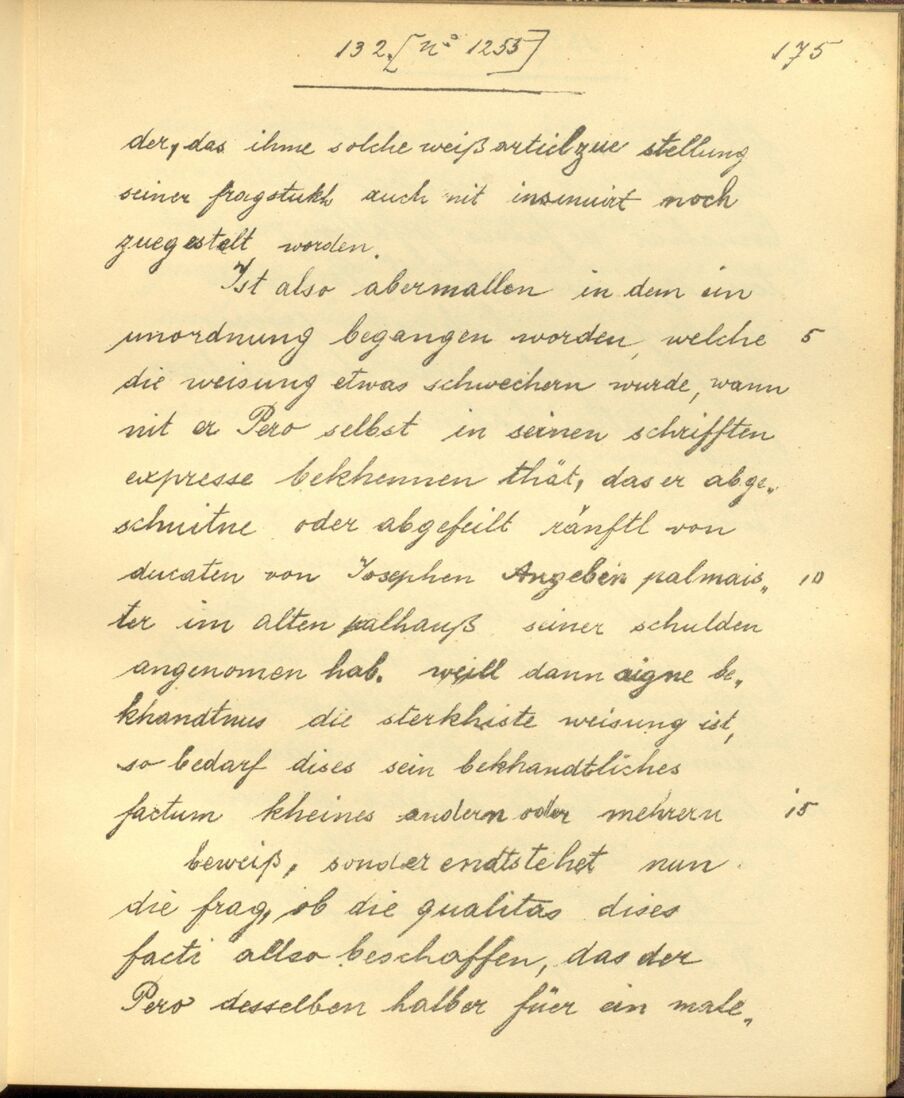 132. [nº 1255] 175
der, das ihme solche weiß artiel zue stellung
seiner fragstukh auch nit insinuirt noch
zuegestelt worden.
Ist also abermallen in dem ein
unordnung begangen worden, welche 5
die weisung etwas schwechern wurde, wann
nit er Pero selbst in seinen schrifften
expresse bekhennen thät, das er abge„
schnitne oder abgefeilt ränftl von
ducaten von Josephen Angebin palmais„ 10
ter im alten palhauß seiner schulden
angenomen hab. weill dann aigne be„
khandtnus die sterkhiste weisung ist,
so bedarf dises sein bekhandtliches
factum kheines andern oder mehrern 15
beweiß, sonder endtstehet nun
die frag, ob die qualitas dises
facti allso beschaffen, das der
Pero desselben halber füer ein male„